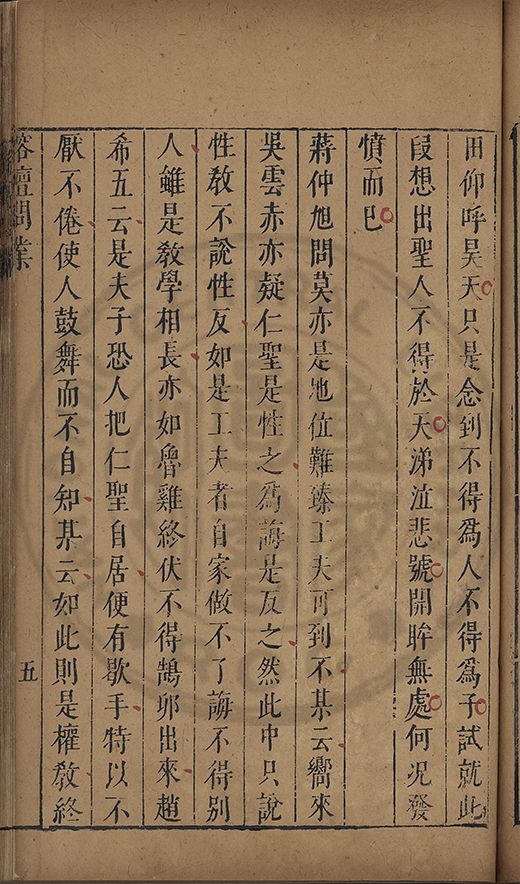 田仰呼昊天只是念到不得爲人不得爲子試就此
叚想出聖人不得於天涕泣悲號開眸無處何况發
憤而已
蔣仲旭問莫亦是地位難臻工夫可到不某云嚮來
吳雲赤亦疑仁聖是性之爲誨是反之然此中只說
性敎不說性反如是工夫者自家做不了誨不得别
人雖是敎學相長亦如魯雞終伏不得鵠卵出來趙
希五云是夫子恐人把仁聖自居便有歇手特以不
厭不倦使人鼓舞而不自知某云如此則是權敎終
榕壇問業
五